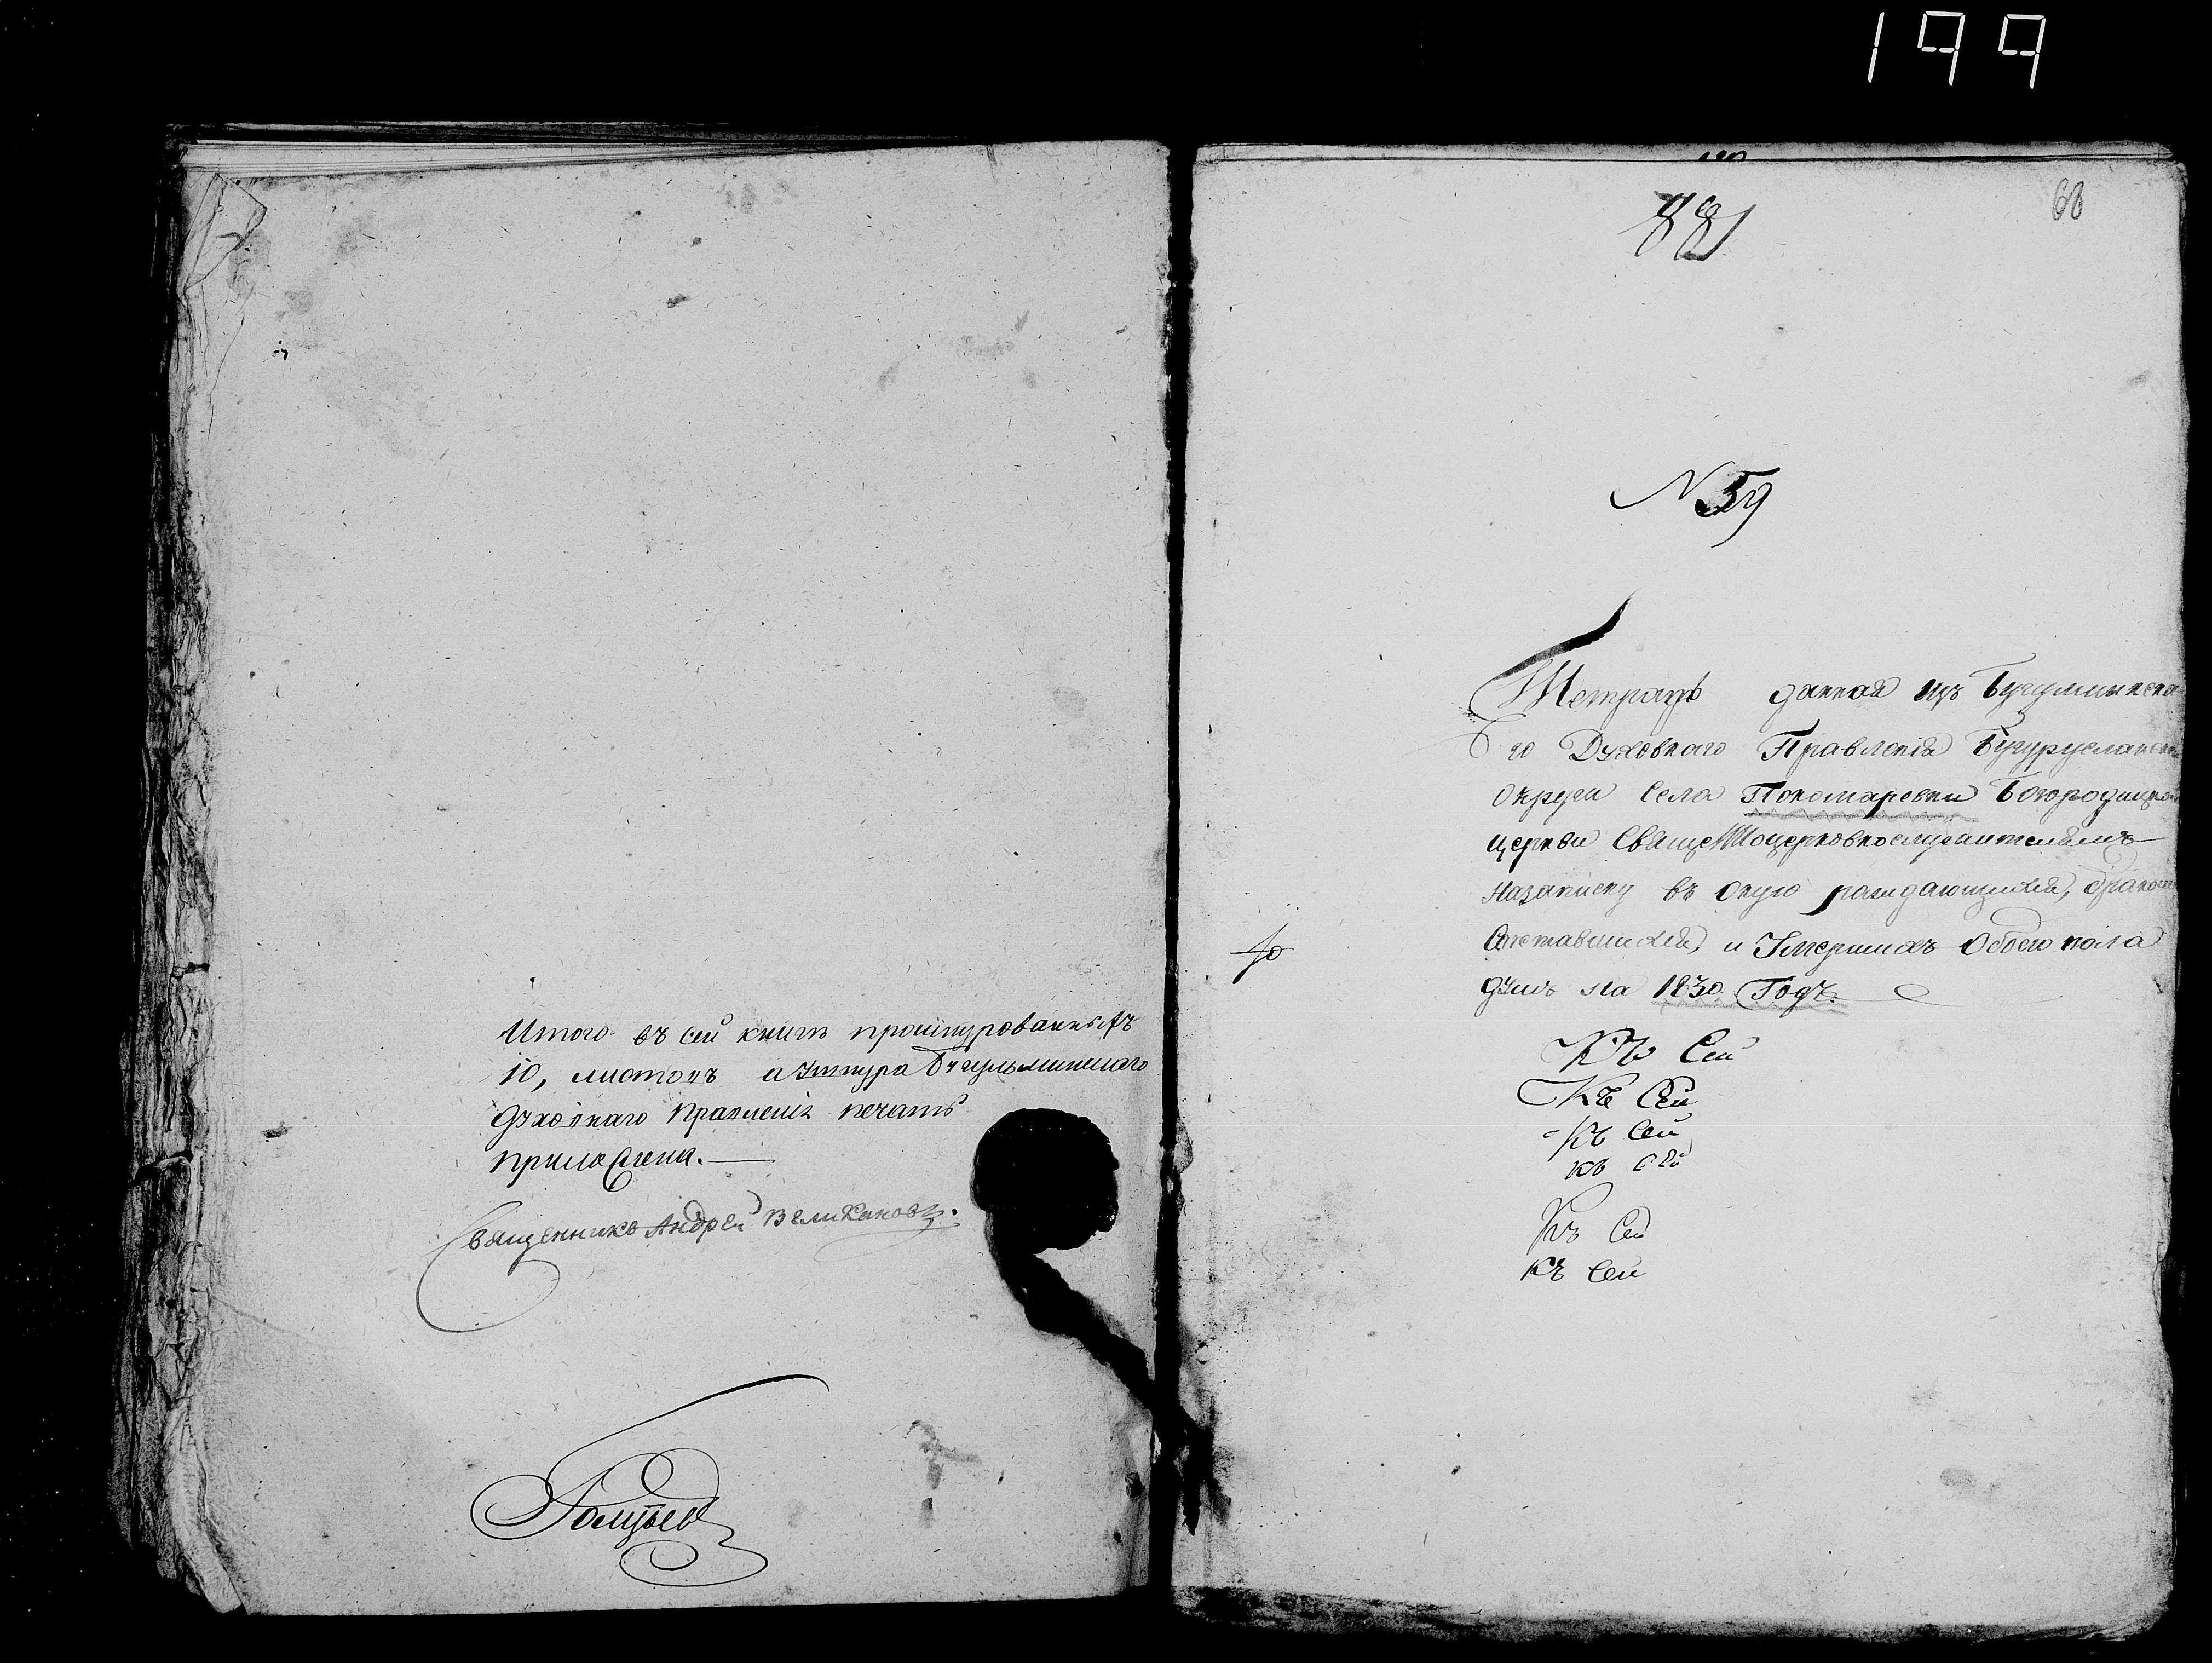 199
Итого въ сей книге прошнурованныхъ
10, листовъ а шнура Бугульминскаго
Духовнаго Правленія печать
приложена.—
Священникъ Андрей Великановъ.
881
68
N 59
Тетрать данная изъ Бугульминска
го Духовнаго Правленія Бугурусланской
округи Села Пономаревки Богородицкой
церкви Священноцерковнослужителямъ
На записку въ оную раждающихся, бракомъ
Сочетавшихся, и Умершихъ Обоего пола
душъ на 1830. Годъ.
Къ Сей
Къ Сей
Къ Сей
къ сей
Къ Сей
Къ Сей